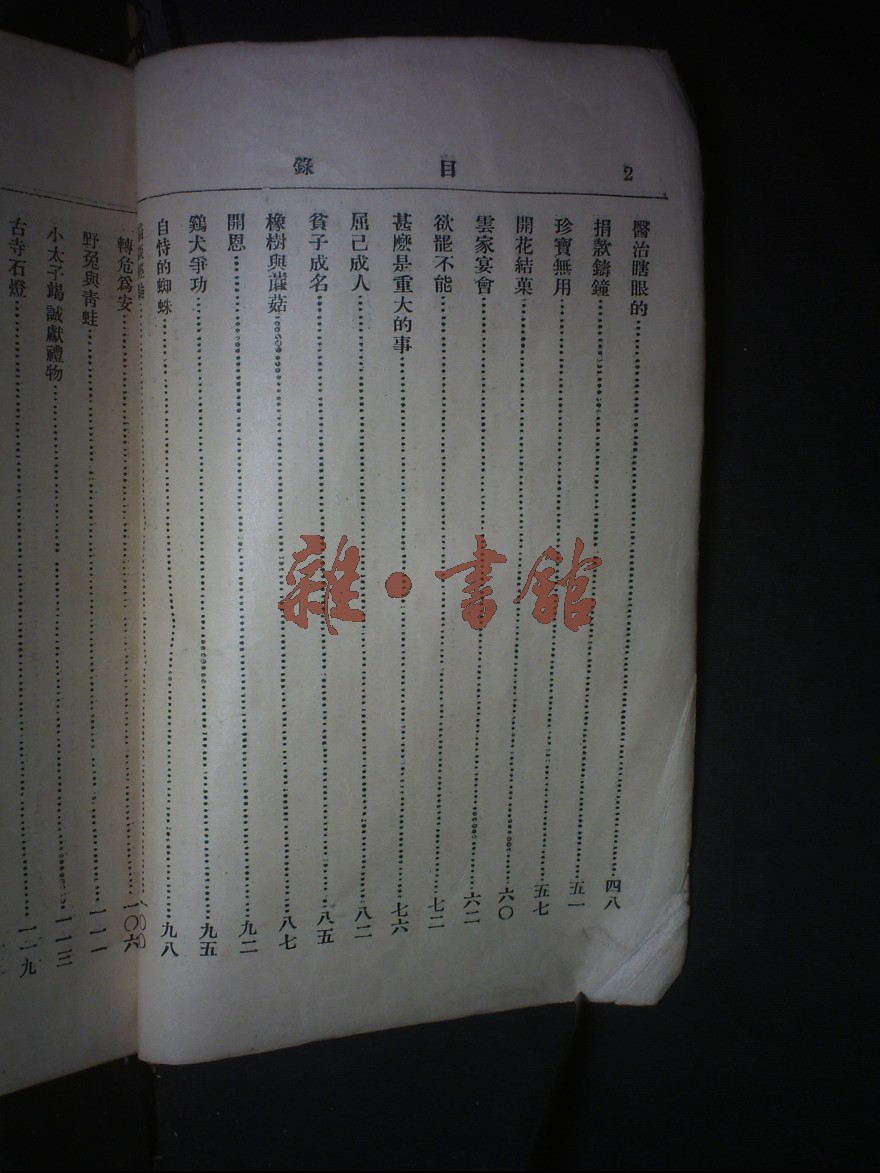 2 目錄
醫治瞎眼的……四八
捐款鑄鐘……五一
珍寶無用……五七
開花結菓……六〇
雲家宴會……六二
欲罷不能……七二
甚麽是重大的事……七六
屈己成人……八二
貧子成名……八五
橡樹與蘑菇……八七
開恩……九二
鷄犬爭功……九五
自恃的蜘蛛……九八
轉危爲安……一〇六
野兔與青蛙……一一一
小太子竭誠獻禮物……一一三
古寺石燈……一二九
雜·書館